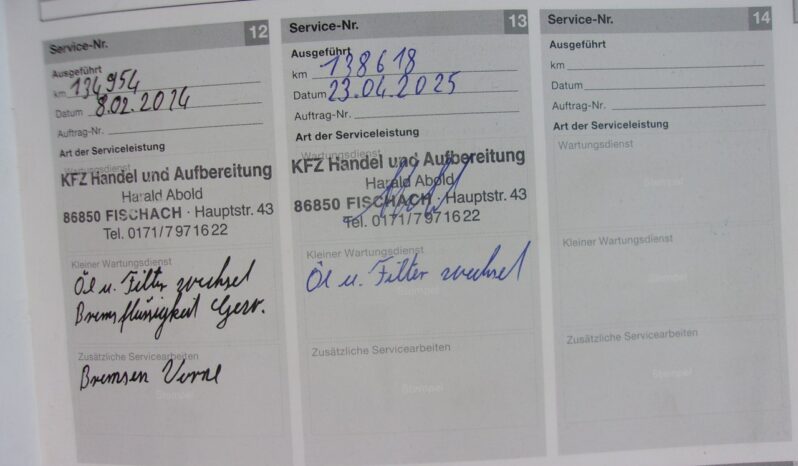 Service-Nr. 12
Ausgeführt
km 134954
Datum 8.02.2014
Auftrag-Nr.
Art der Serviceleistung
Wartungsdienst
KFZ Handel und Aufbereitung
Harald Abold
86850 FISCHACH · Hauptstr. 43
Tel. 0171/7971622
Kleiner Wartungsdienst
Öl u. Filter wechsel
Bremsflüsigkeit Gew.
Zusätzliche Servicearbeiten
Bremsen Vorne
Stempel
Service-Nr. 13
Ausgeführt
km 138618
Datum 23.04.2025
Auftrag-Nr.
Art der Serviceleistung
Wartungsdienst
KFZ Handel und Aufbereitung
Harald Abold
86850 FISCHACH · Hauptstr. 43
Tel. 0171/7971622
Kleiner Wartungsdienst
Öl u. Filter wechsel
Zusätzliche Servicearbeiten
Stempel
Service-Nr. 14
Ausgeführt
km
Datum
Auftrag-Nr.
Art der Serviceleistung
Wartungsdienst
Stempel
Kleiner Wartungsdienst
Stempel
Zusätzliche Servicearbeiten
Stempel